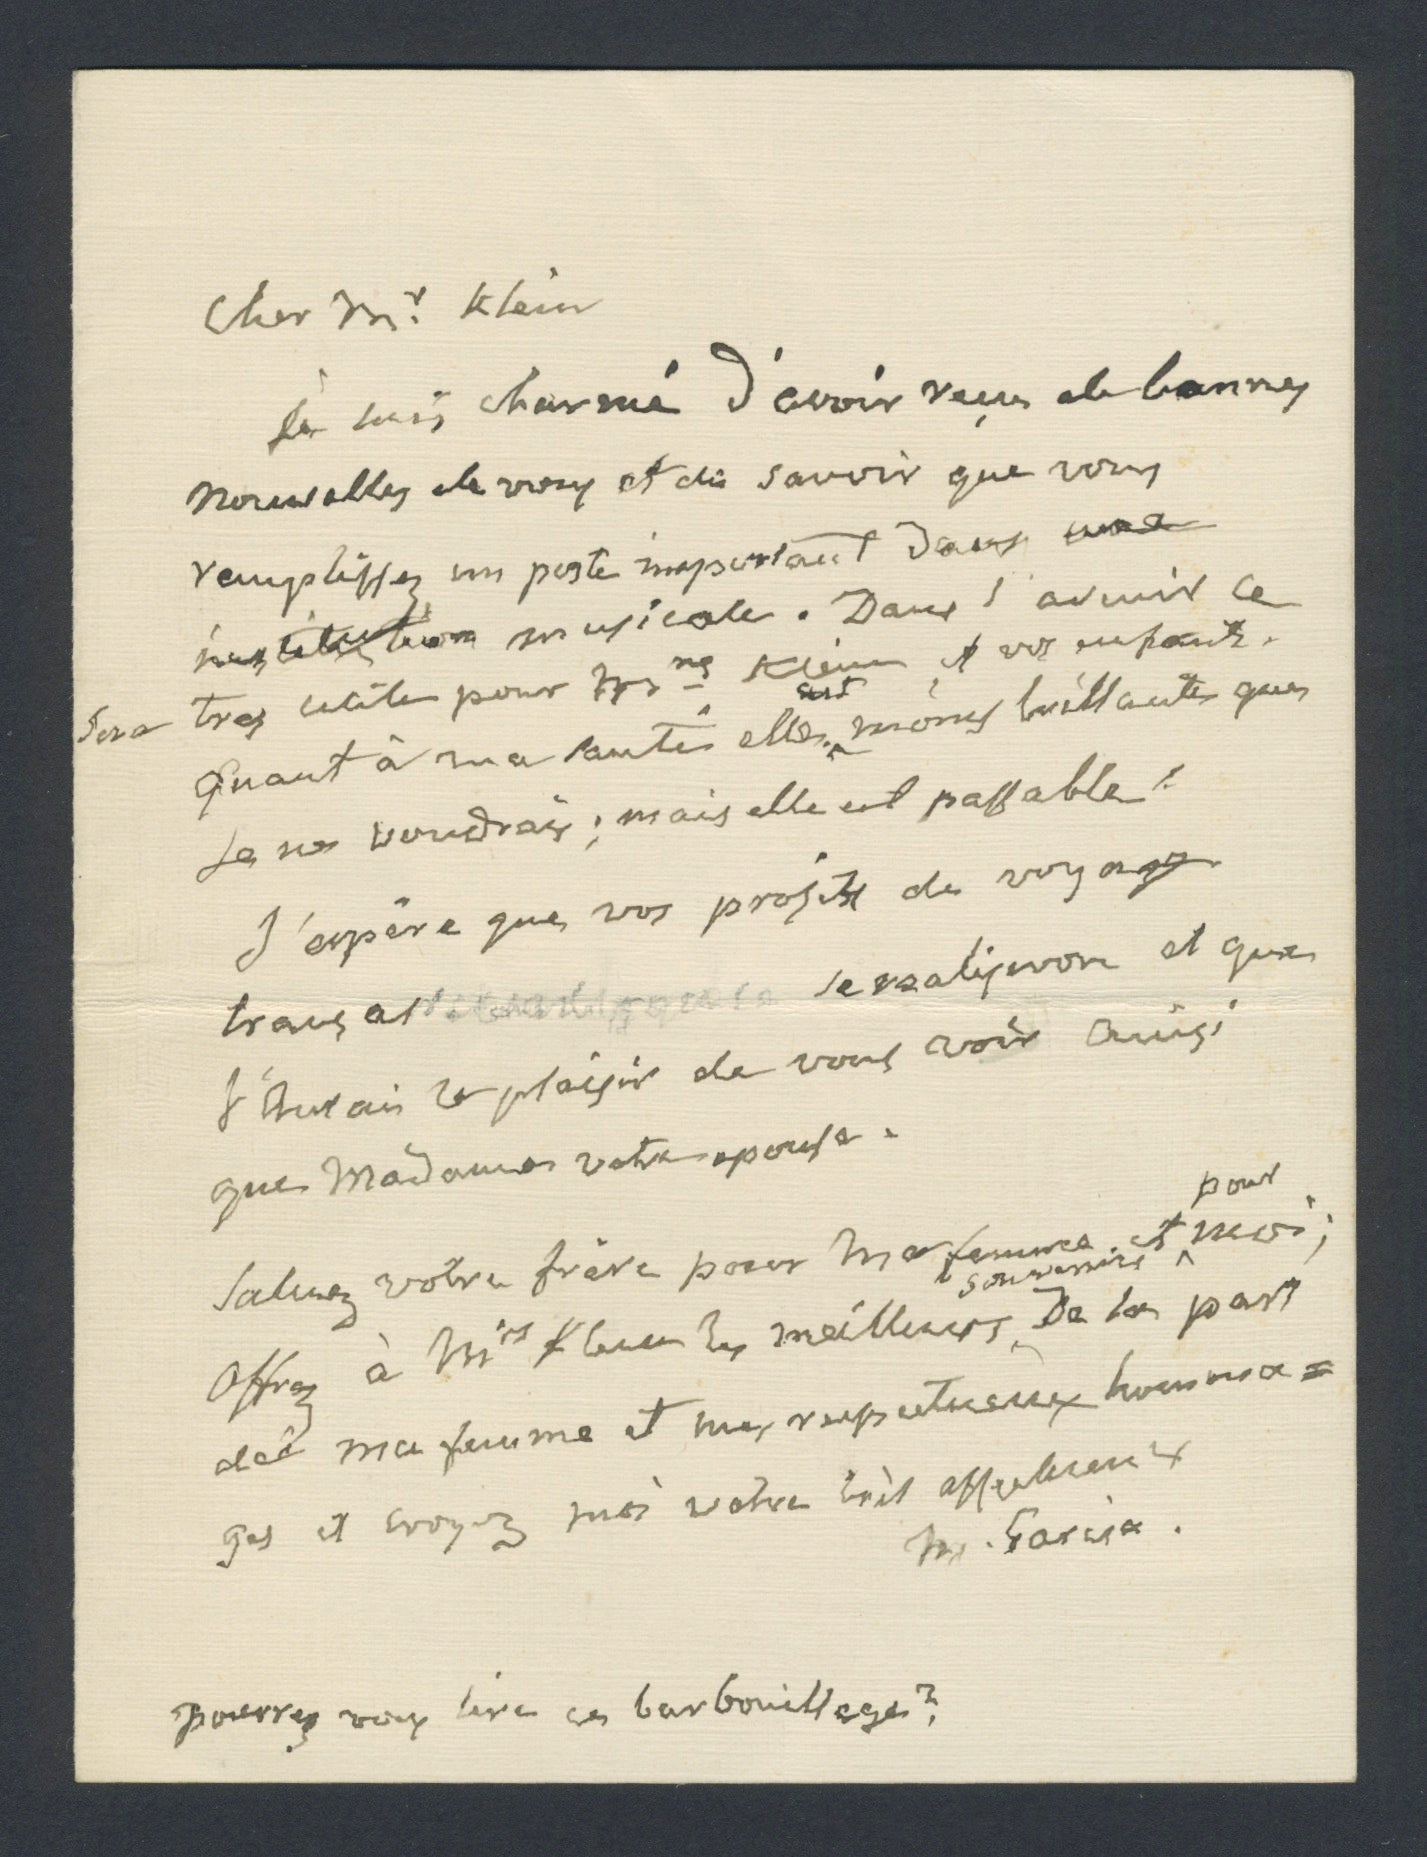 Cher Mr. Klein
Je suis charmé d'avoir reçu de bonnes
nouvelles de vous et de savoir que vous
remplissez un poste important dans une
institution musicale. Dans l'avenir ce
sera tres utile pour Mme Klein et vos enfants.
Quant à ma santé elle est moins brillante que
Je ne voudrais; mais elle est passable!
J'espère que vos projets de voyage
transat se realiseron et que
J'aurai le plaisir de vous voir ainsi
que Madame votre epouse.
Saluez votre frère pour ma femme et pour moi;
Offrez à Mrs Klein les meilleurs souvenirs de la part
de ma femme et mes respectueux homma=
ges et croyez moi votre très affectueux
M. Garcia.
pourrez vous lire ce barbouillage?